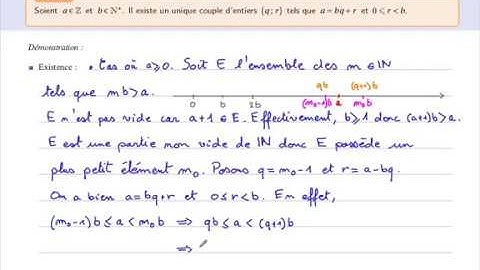 Soient a ∈ ℤ et b ∈ ℕ*. Il existe un unique couple d'entiers (q ; r) tels que a = bq + r et 0 ⩽ r < b.
Démonstration :
■ Existence : • Cas où a ⩾ 0. Soit E l'ensemble des m ∈ ℕ
tels que mb > a.
qb (q+1)b
0 b 2b (m₀-1)b a m₀b
E n'est pas vide car a+1 ∈ E. Effectivement, b ⩾ 1 donc (a+1)b > a.
E est une partie non vide de ℕ donc E possède un
plus petit élément m₀. Posons q = m₀-1 et r = a-bq.
On a bien a = bq+r et 0 ≤ r < b. En effet,
(m₀-1)b ≤ a < m₀b ⟹ qb ≤ a < (q+1)b
⟹